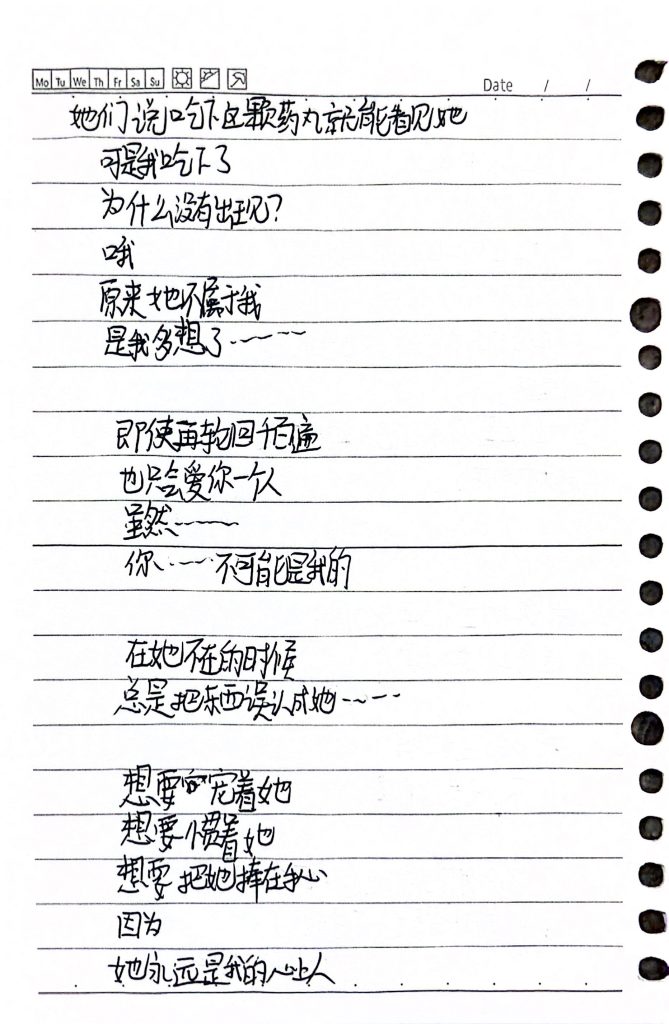 Mo Tu We Th Fr Sa Su
Date / /
她们说吃下这颗药丸就能看见她
可是我吃下了
为什么没有出现?
哦
原来她不属于我
是我多想了……
即使再轮回千百遍
也只会爱你一个人
虽然……
你……不可能是我的
在她不在的时候
总是把东西误认成她……
想要宠着她
想要惯着她
想要把她捧在手心
因为
她永远是我的心上人